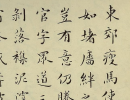 東郊瘦馬
如堵牆絆之
豈有意仍
官字眾道三
剝落雜泥滓